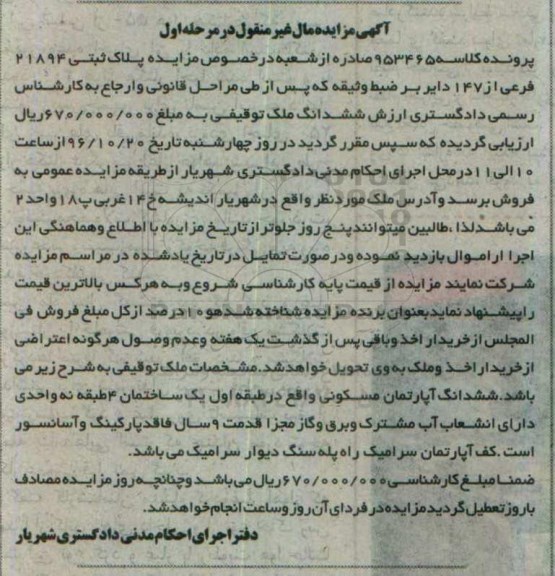 آگهی مزایده مال غیر منقول در مرحله اول
پرونده کلاسه ۹۵۳۴۶۵ صادره از شعبه در خصوص مزایده پلاک ثبتی ۲۱۸۹۴
فرعی از ۱۴۷ دایر بر ضبط وثیقه که پس از طی مراحل قانونی و ارجاع به کارشناس
رسمی دادگستری ارزش ششدانگ ملک توقیفی به مبلغ ۶۷۰/۰۰۰/۰۰۰ ریال
ارزیابی گردیده که سپس مقرر گردید در روز چهارشنبه تاریخ ۹۶/۱۰/۲۰ از ساعت
۱۰ الی ۱۱ در محل اجرای احکام مدنی دادگستری شهریار از طریقه مزایده عمومی به
فروش برسد و آدرس ملک مورد نظر واقع در شهریار اندیشه خ ۱۴ غربی پ ۱۸ واحد ۲
می باشد لذا ، طالبین میتوانند پنج روز جلوتر از تاریخ مزایده با اطلاع و هماهنگی این
اجرا از اموال بازدید نموده و در صورت تمایل در تاریخ یاد شده در مراسم مزایده
شرکت نمایند مزایده از قیمت پایه کارشناسی شروع و به هر کس بالاترین قیمت
را پیشنهاد نماید بعنوان برنده مزایده شناخته شد هو ۱۰ در صد از کل مبلغ فروش فی
المجلس از خریدار اخذ و باقی پس از گذشت یک هفته و عدم وصول هر گونه اعتراضی
از خریدار اخذ و ملک به وی تحویل خواهد شد. مشخصات ملک توقیفی به شرح زیر می
باشد. ششدانگ آپارتمان مسکونی واقع در طبقه اول یک ساختمان ۴ طبقه نه واحدی
دارای انشعاب آب مشترک و برق و گاز مجزا قدمت ۹ سال فاقد پارکینگ و آسانسور
است .کف آپارتمان سرامیک راه پله سنگ دیوار سرامیک می باشد.
ضمنا مبلغ کارشناسی ۶۷۰/۰۰۰/۰۰۰ ریال می باشد و چنانچه روز مزایده مصادف
با روز تعطیل گردید مزایده در فردای آن روز و ساعت انجام خواهد شد.
دفتر اجرای احکام مدنی دادگستری شهریار